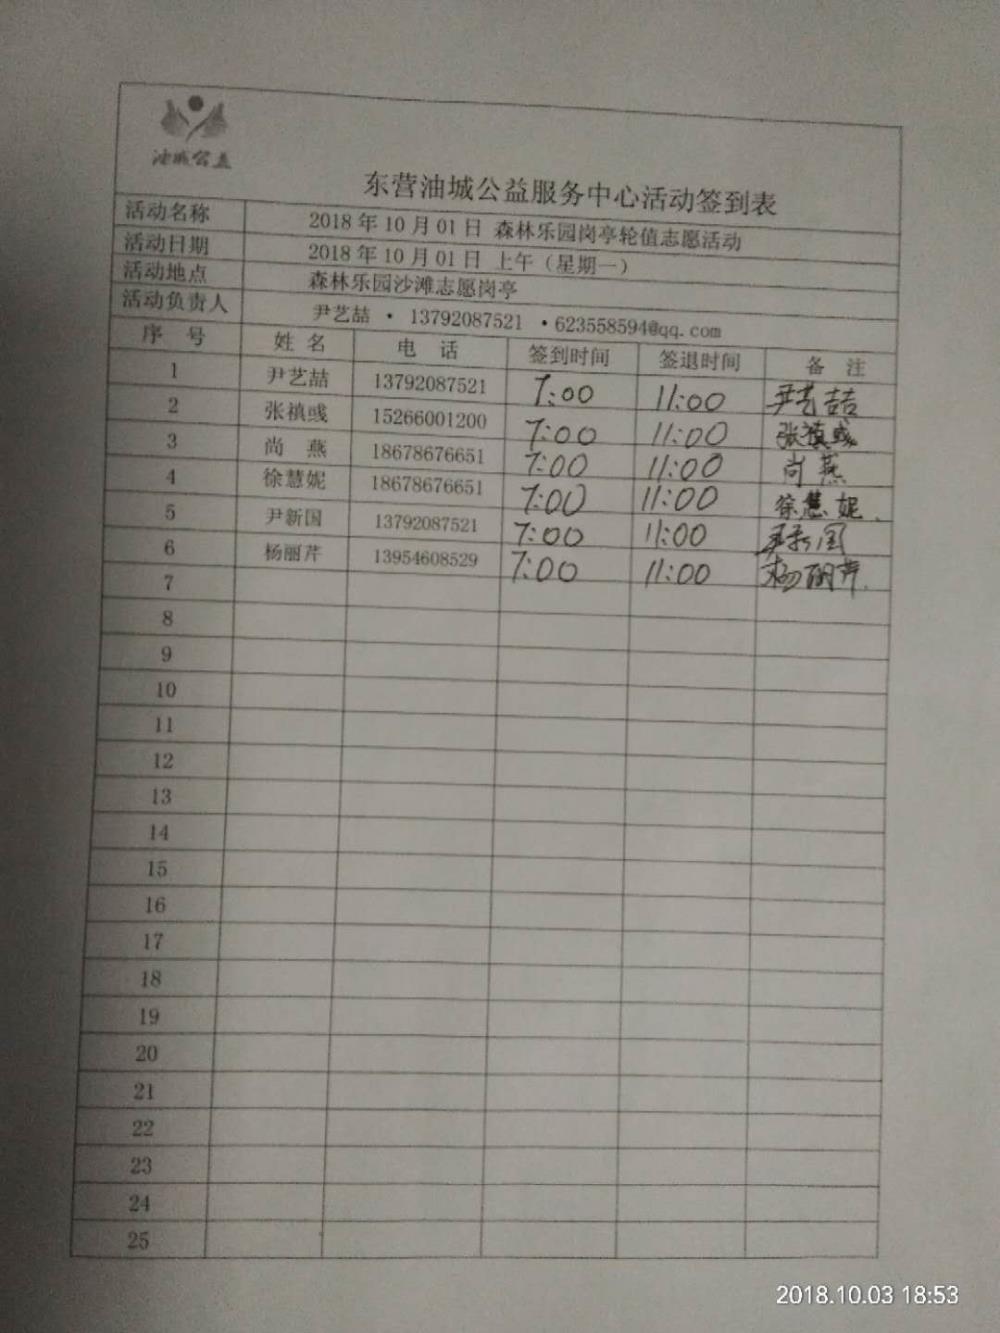 油城公益
东营油城公益服务中心活动签到表
活动名称 2018 年 10 月 01 日 森林乐园岗亭轮值志愿活动
活动日期 2018 年 10 月 01 日 上午（星期一）
活动地点 森林乐园沙滩志愿岗亭
活动负责人 尹艺喆 · 13792087521 ·623558594@qq.com
序 号 姓 名 电 话 签到时间 签退时间 备 注
1 尹艺喆 13792087521 7:00 11:00 尹艺喆
2 张禛彧 15266001200 7:00 11:00 张禛彧
3 尚 燕 18678676651 7:00 11:00 尚燕
4 徐慧妮 18678676651 7:00 11:00 徐慧妮.
5 尹新国 13792087521 7:00 11:00 尹新国
6 杨丽芹 13954608529 7:00 11:00 杨丽芹.
7
8
9
10
11
12
13
14
15
16
17
18
19
20
21
22
23
24
25
2018.10.03 18:53